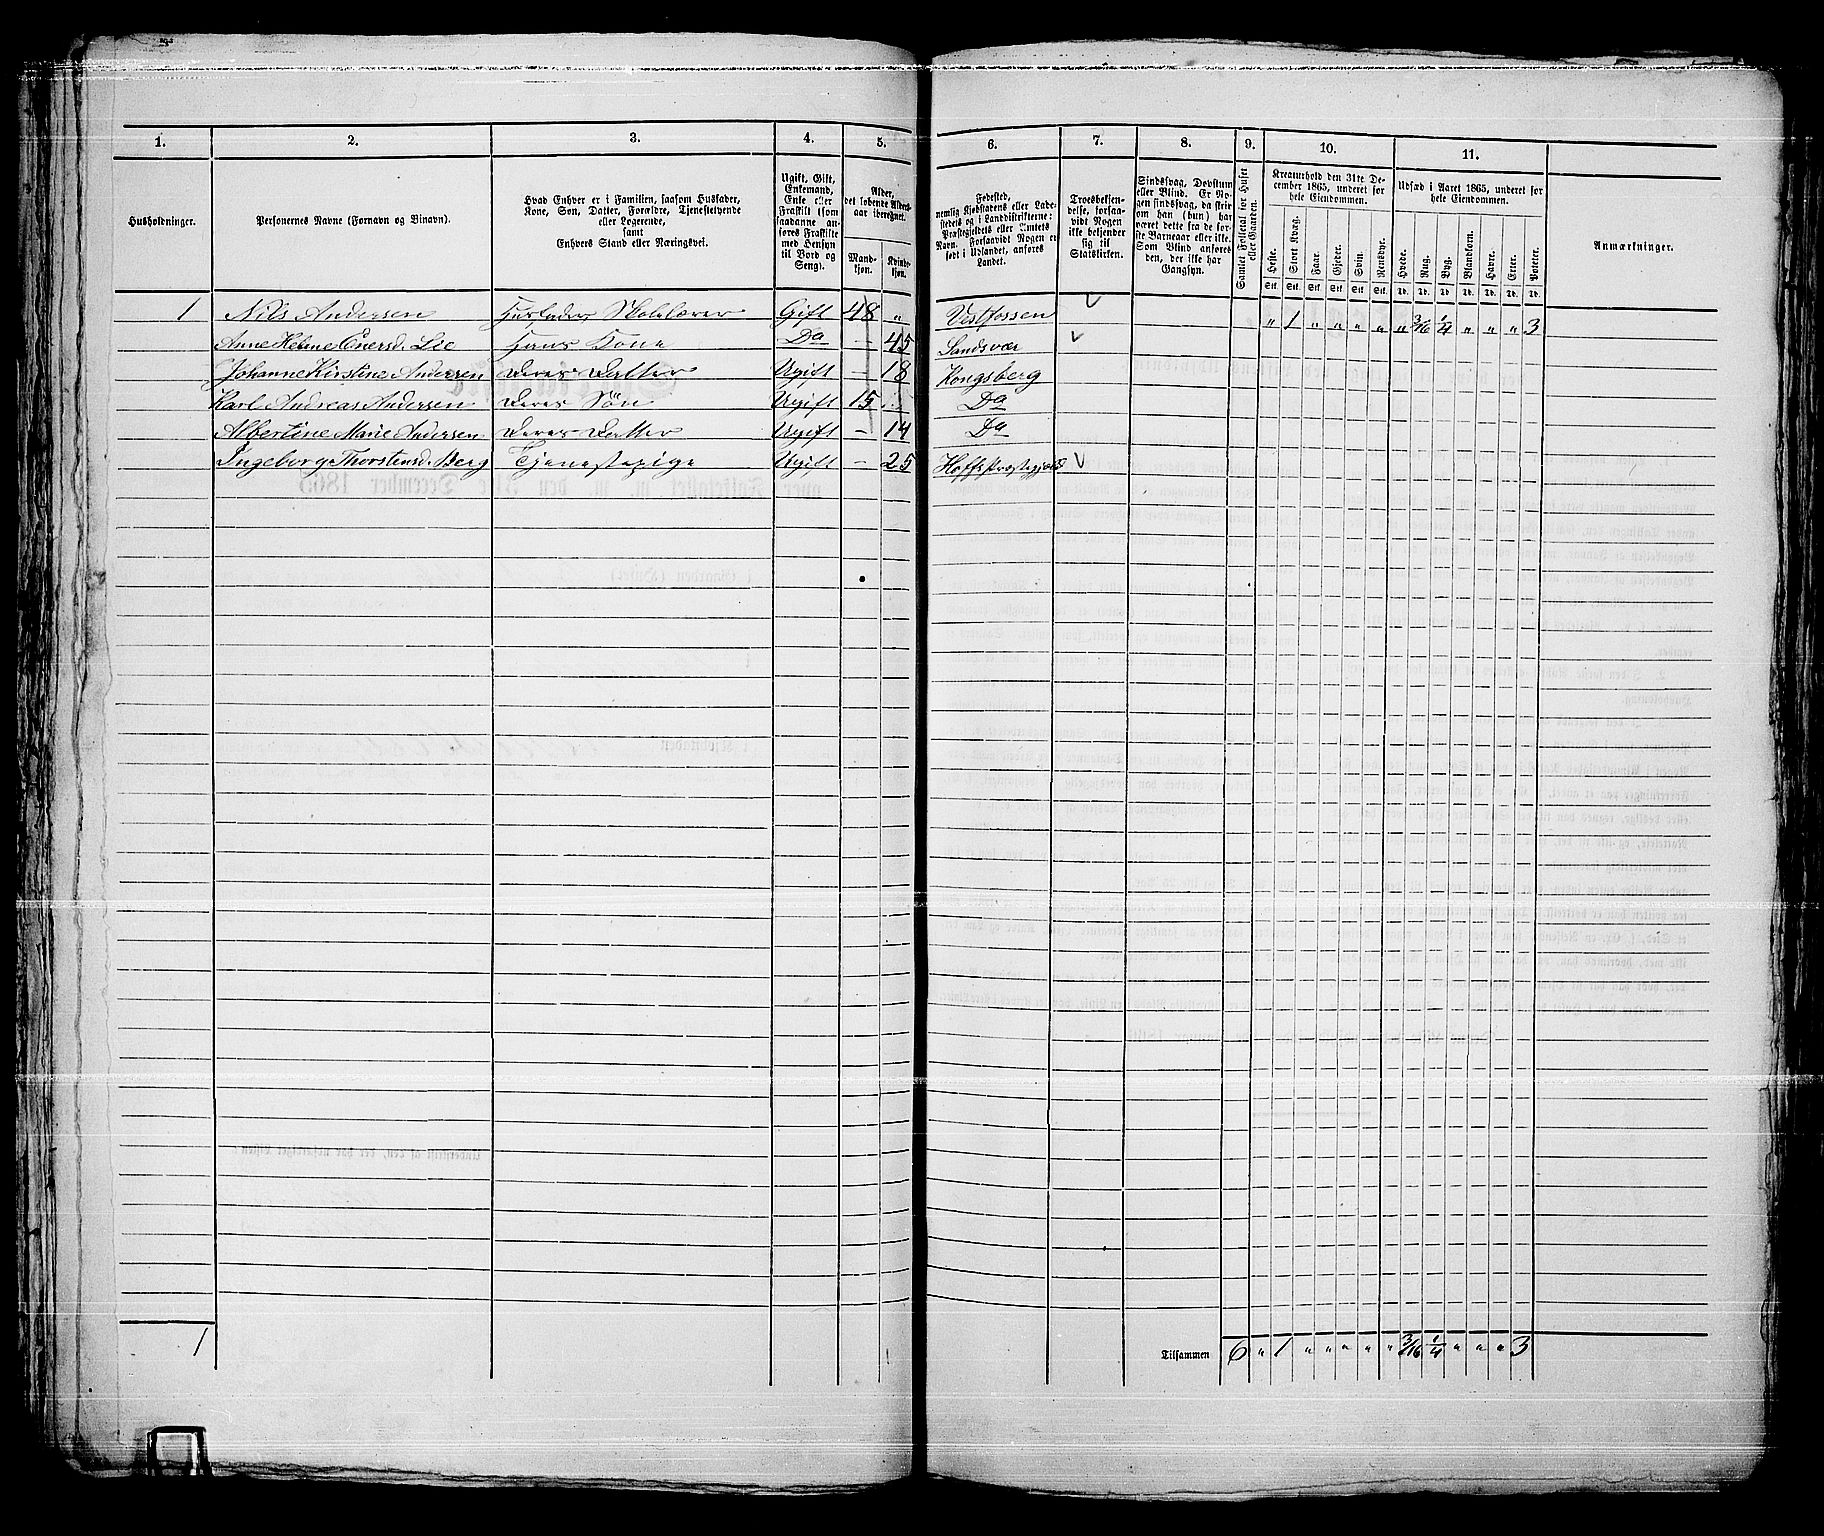 1. 2. 3. 4. 5. 6. 7. 8. 9. 10. 11.
Husholdninger.
Personernes Navne (Fornavn og Binavn).
Hvad Enhver er i Familien, saasom Husfader,
Kone, Søn, Datter, Forældre, Tjenestetyende
eller Logerende,
samt
Enhvers Stand eller Næringsvei.
Ugift, Gift,
Enkemand,
Enke eller
Fraskilt (som
saadanne anføres
Fraskilte
med Hensyn
til Bord og
Seng).
Alder,
det løbende Alders-
aar iberegnet.
Mand-
kjøn.
Kvinde-
kjøn.
Fødested,
nemlig Kjøbstadens eller Lade-
stedets og i Landdistrikterne:
Præstegjeldets eller Amtets
Navn. Forsaavidt Nogen er
født i Udlandet, anføres
Landet.
Troesbekjen-
delse, forsaa-
vidt Nogen
ikke bekjender
sig til
Statskirken.
Sindssvag, Døvstum
eller Blind. Er No-
gen sindssvag, da skriv
om han (hun) har
været dette fra de før-
ste Barneaar eller ikke.
Som Blind anføres
den, der ikke har
Gangsyn.
Samlet Folketal for Huset
eller Gaarden.
Kreaturhold den 31te De-
cember 1865, underet for
hele Eiendommen.
Heste. Stort Kvæg. Faar. Gjeder. Svin. Rensdyr.
Stk. Stk. Stk. Stk. Stk. Stk.
Udsæd i Aaret 1865, underet for
hele Eiendommen.
Hvede. Rug. Byg. Blandkorn. Havre. Erter. Poteter.
Td. Td. Td. Td. Td. Td. Td.
Anmærkninger.
1 Nils Andersen Husfader, Skolelærer Gift 48 „ Vestfossen „ 1 „ „ „ „ „ 3/16 1/4 „ „ „ 3
Anne Helene Enersd. Lie Hans Kone Do — 45 Sandsvær
Johanne Kirstine Andersen Deres Datter Ugift — 18 Kongsberg
Karl Andreas Andersen Deres Søn Ugift 15 Do
Albertine Marie Andersen Deres Datter Ugift — 14 Do
Ingeborg Thorstensd. Berg Tjenestepige Ugift — 25 Hoffs Præstegjæld
1 Tilsammen 6 „ 1 „ „ „ „ „ 3/16 1/4 „ „ „ 3